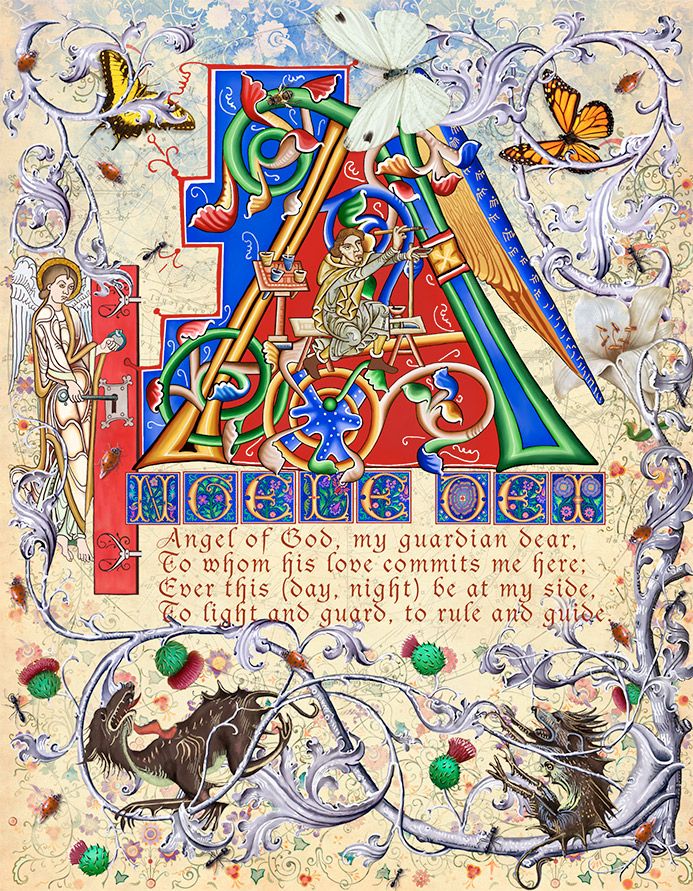 ANGELE DEI
Angel of God, my guardian dear,
To whom his love commits me here;
Ever this (day, night) be at my side,
To light and guard, to rule and guide